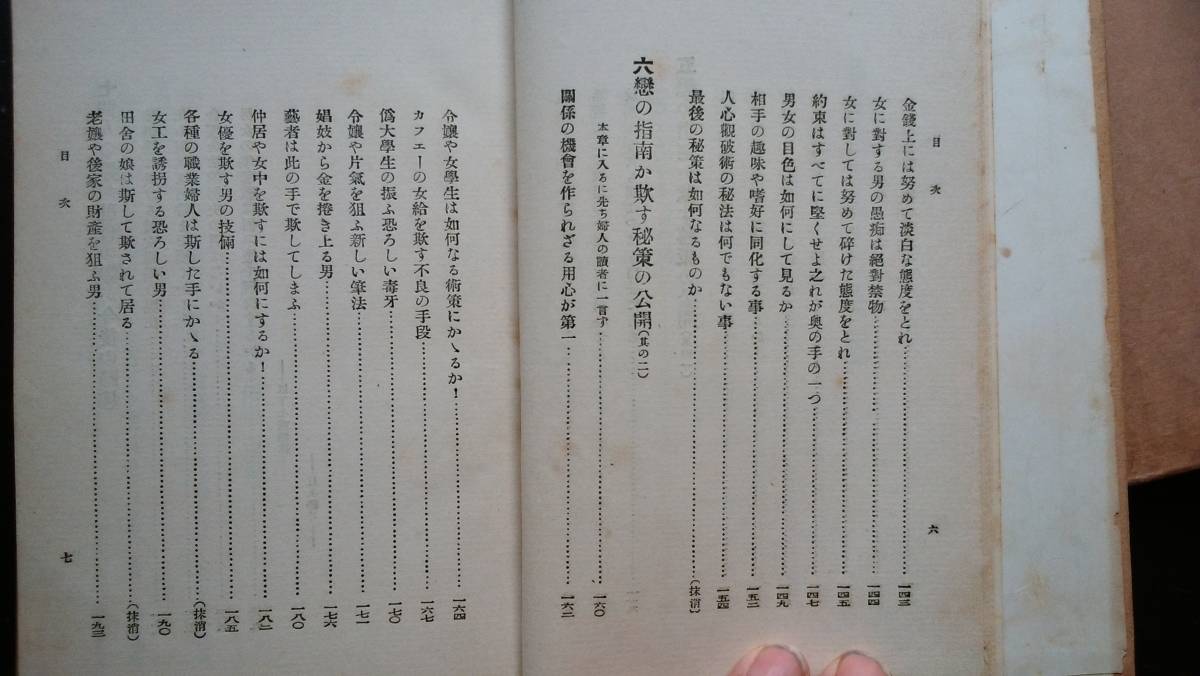 目次
六
金錢上には努めて淡白な態度をとれ……一四三
女に對する男の愚痴は絕對禁物……一四四
女に對しては努めて碎けた態度をとれ……一四五
約束はすべてに堅くせよ之れが奧の手の一つ……一四七
男女の目色は如何にして見るか……一四九
相手の趣味や嗜好に同化する事……一五二
人心觀破術の秘法は何でもない事……一五四
最後の秘策は如何なるものか……(抹消)
六戀の指南か欺す秘策の公開(其の二)
本章に入るに先ち婦人の讀者に一言す……一六〇
關係の機會を作られざる用心が第一……一六二
令孃や女學生は如何なる術策にかゝるか!……一六四
カフエーの女給を欺す不良の手段……一六七
僞大學生の振ふ恐ろしい毒牙……一七〇
令孃や片氣を狙ふ新しい筆法……一七二
娼妓から金を捲き上る男……一七六
藝者は此の手で欺してしまふ……一八〇
仲居や女中を欺すには如何にするか!……一八二
女優を欺す男の技倆……一八五
各種の職業婦人は斯した手にかゝる……(抹消)
女工を誘拐する恐ろしい男……一九〇
田舍の娘は斯して欺されて居る……(抹消)
老孃や後家の財產を狙ふ男……一九三
目次
七